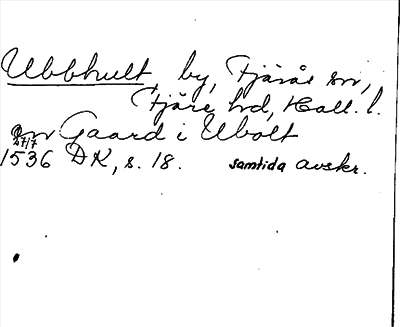 Ubbhult, by, Fjärås sn,
Fjäre hd, Hall. l.
en Gaard i Ubolt
27/7
1536 DK, s. 18. samtida avskr.